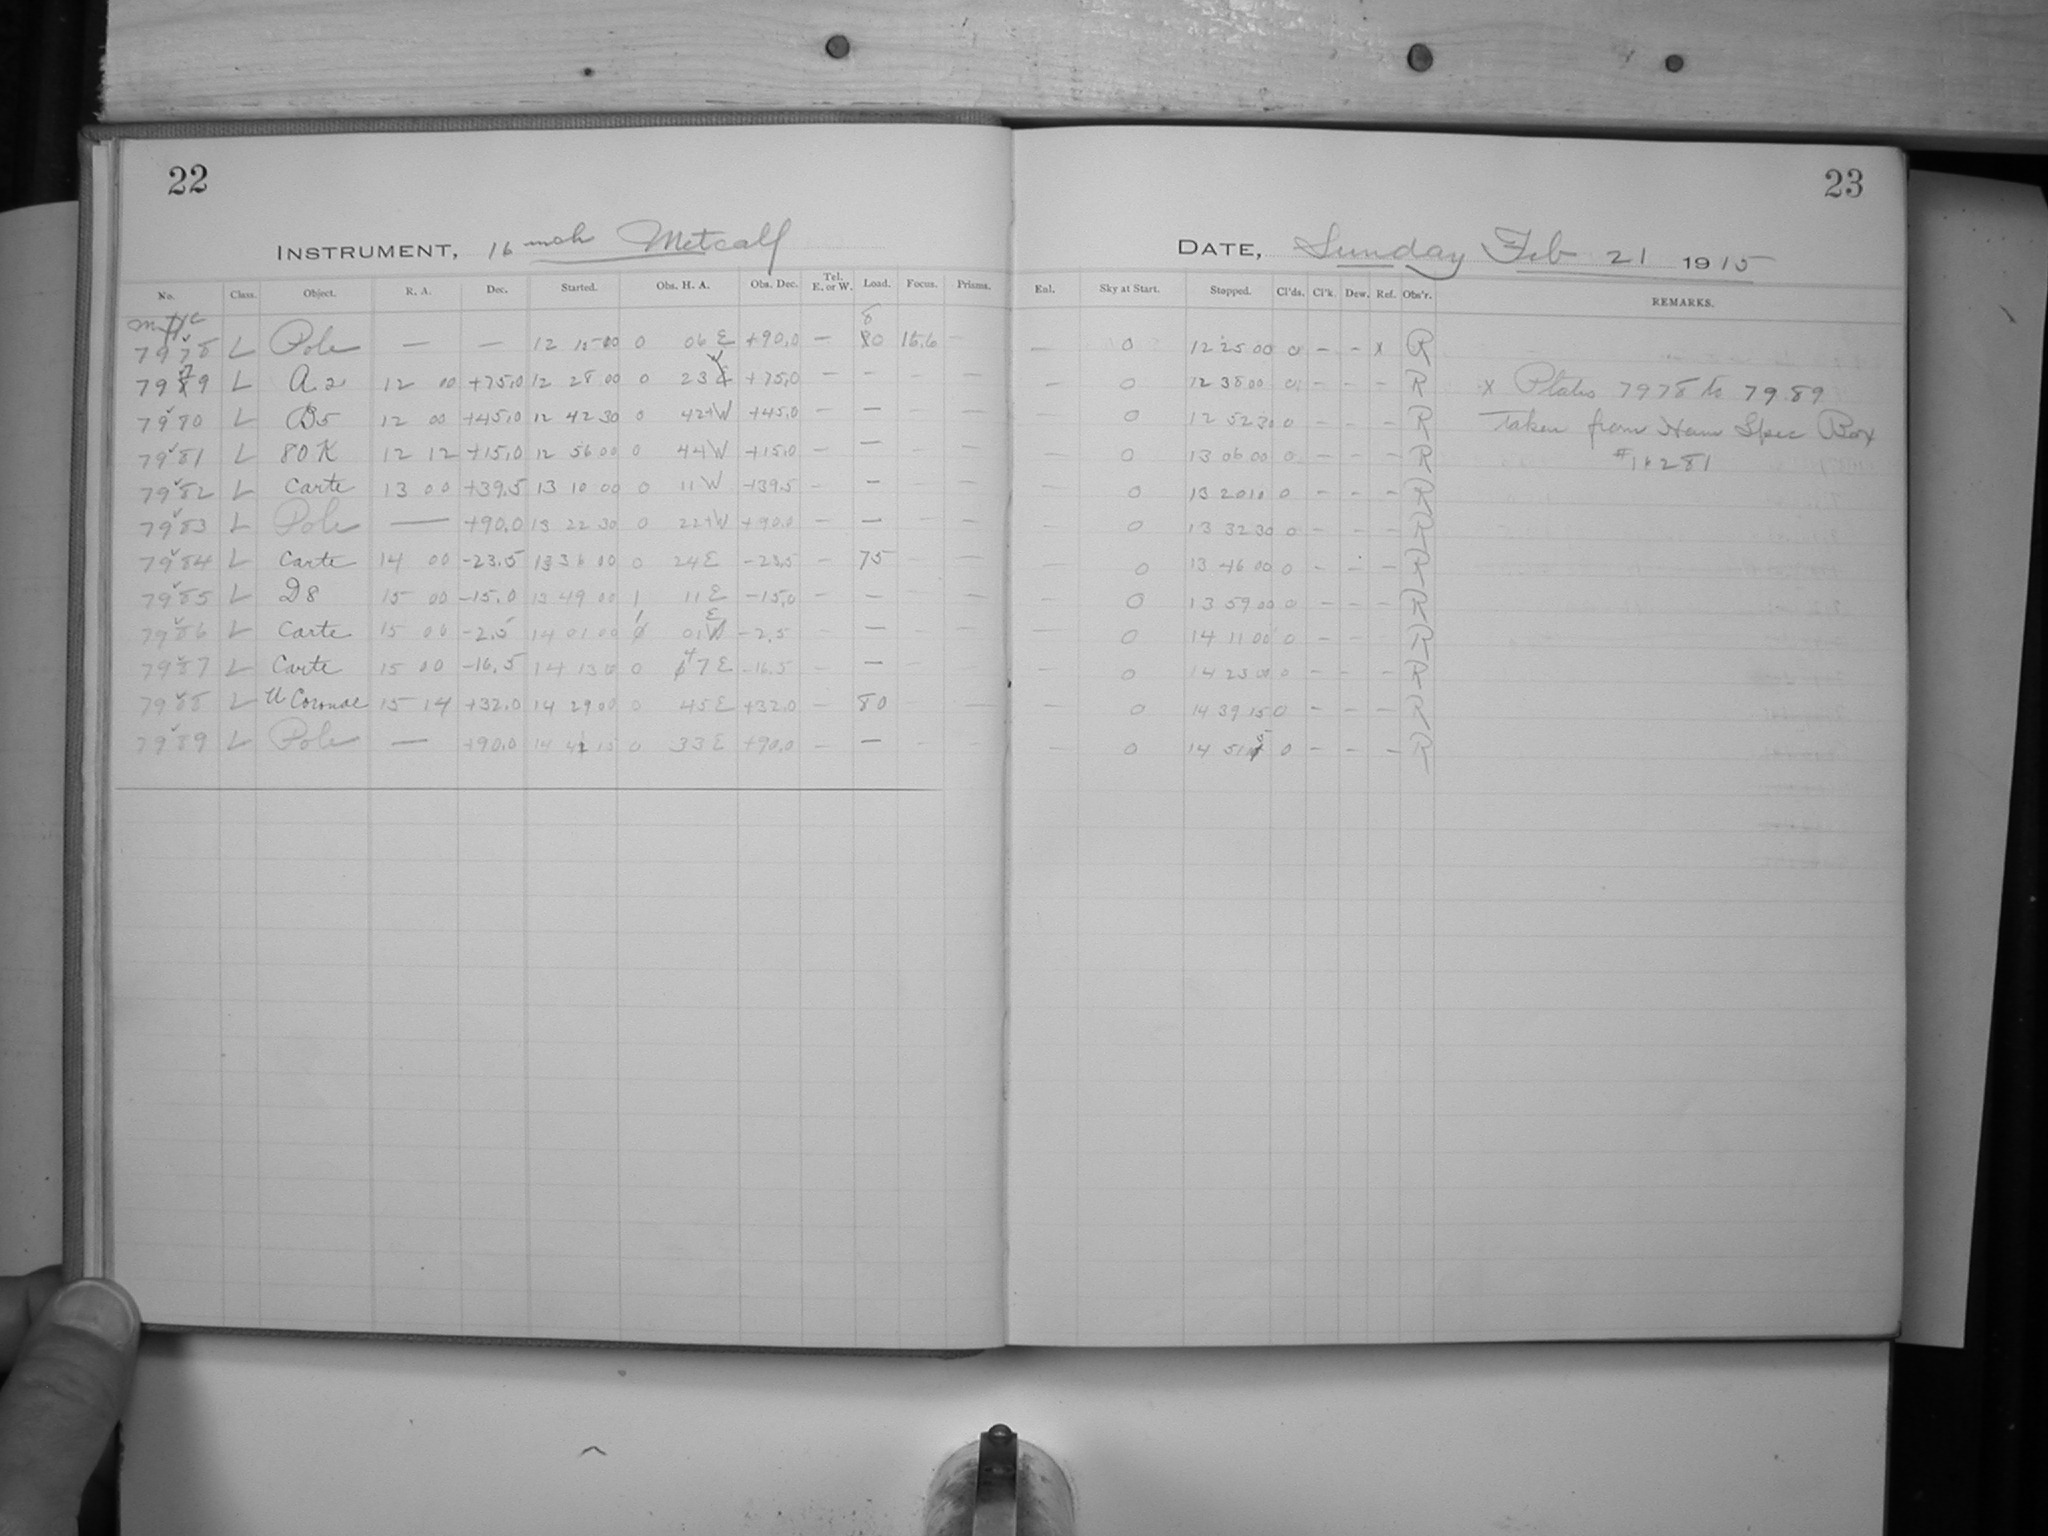 22
23
INSTRUMENT, 16 inch Metcalf
DATE, Sunday Feb 21 1915
No. Class. Object. R. A. Dec. Started. Obs. H. A. Obs. Dec. Tel. E. or W. Load. Focus. Prisms. Enl. Sky at Start. Stopped. Cl'ds. Cl'k. Dew. Ref. Obs'r. REMARKS.
7978 L Pole — — 12 15 00 0 06 E +90.0 — 80 15.6 — — 0 12 25 00 0 — — x R
7979 L A2 12 00 +75.0 12 28 00 0 23 W +75.0 — — — — — 0 12 38 00 0 — — — R x Plates 7978 to 7989
7980 L B5 12 00 +45.0 12 42 30 0 42+W +45.0 — — — — — 0 12 52 30 0 — — — R Taken from Ham Spec Box
7981 L 80K 12 12 +15.0 12 56 00 0 44 W +15.0 — — — — — 0 13 06 00 0 — — — R #16281
7982 L Carte 13 00 +39.5 13 10 00 0 11 W +39.5 — — — — — 0 13 20 10 0 — — — R
7983 L Pole — +90.0 13 22 30 0 22+W +90.0 — — — — — 0 13 32 30 0 — — — R
7984 L Carte 14 00 -23.5 13 36 00 0 24 E -23.5 — 75 — — — 0 13 46 00 0 — — — R
7985 L D8 15 00 -15.0 13 49 00 1 11 E -15.0 — — — — — 0 13 59 00 0 — — — R
7986 L Carte 15 00 -2.5 14 01 00 1 01 E -2.5 — — — — — 0 14 11 00 0 — — R
7987 L Carte 15 00 -16.5 14 13 0 0 47 E -16.5 — — — — — 0 14 23 00 0 — — — R
7988 L U Coronae 15 14 +32.0 14 29 00 0 45 E +32.0 — 80 — — — 0 14 39 15 0 — — — R
7989 L Pole — +90.0 14 41 15 0 33 E +90.0 — — — — — 0 14 51 15 0 — — — R